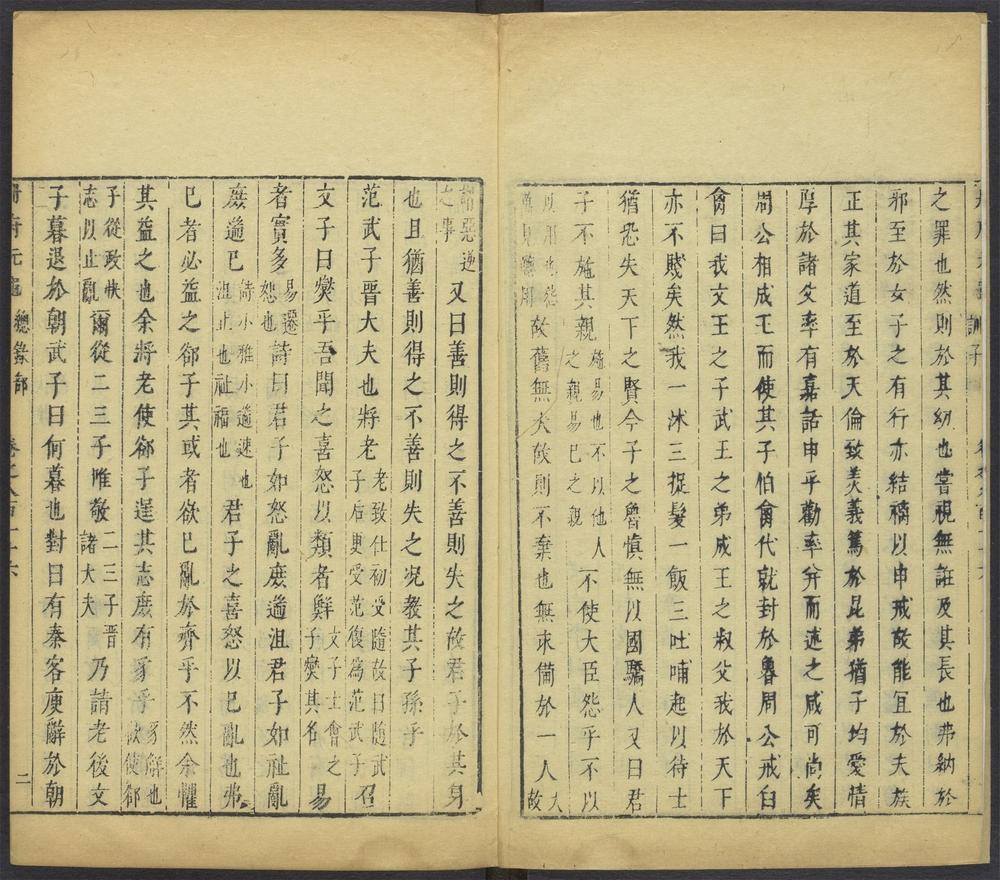 訓子
之罪也然則於其幼也嘗視無誑及其長也弗納於
邪至於女子之有行亦結褵以申戒故能宜於夫族
正其家道至於天倫致美義篤於昆弟猶子均愛情
厚於諸父率有嘉話申乎勸率并而述之咸可尚矣
周公相成王而使其子伯禽代就封於魯周公戒伯
禽曰我文王之子武王之弟成王之叔父我於天下
亦不賤矣然我一沐三捉髮一飯三吐哺起以待士
猶恐失天下之賢今子之魯慎無以國驕人又曰君
子不施其親施易也不以他人之親易己之親不使大臣怨乎不以
以用也怨不見聽用故舊無大故則不棄也無求備於一人大故
謂惡逆之事又曰善則得之不善則失之故君子於其身
也且猶善則得之不善則失之况教其子孫乎
范武子晉大夫也將老老致仕初受隨故曰隨武子后更受范復為范武子召
文子曰爕乎吾聞之喜怒以類者鮮文子士會之子爕其名易
者實多易遷怒也詩曰君子如怒亂庻遄沮君子如祉亂
庻遄已詩小雅小遄速也沮止也祉福也君子之喜怒以已亂也弗
已者必益之郤子其或者欲已亂於齊乎不然余懼
其益之也余將老使郤子逞其志庻有豸乎豸解也欲使郤
子從政快志以止亂爾從二三子唯敬二三子晉諸大夫乃請老後文
子暮退於朝武子曰何暮也對曰有秦客廋辭於朝
冊府元龜 總錄部 二